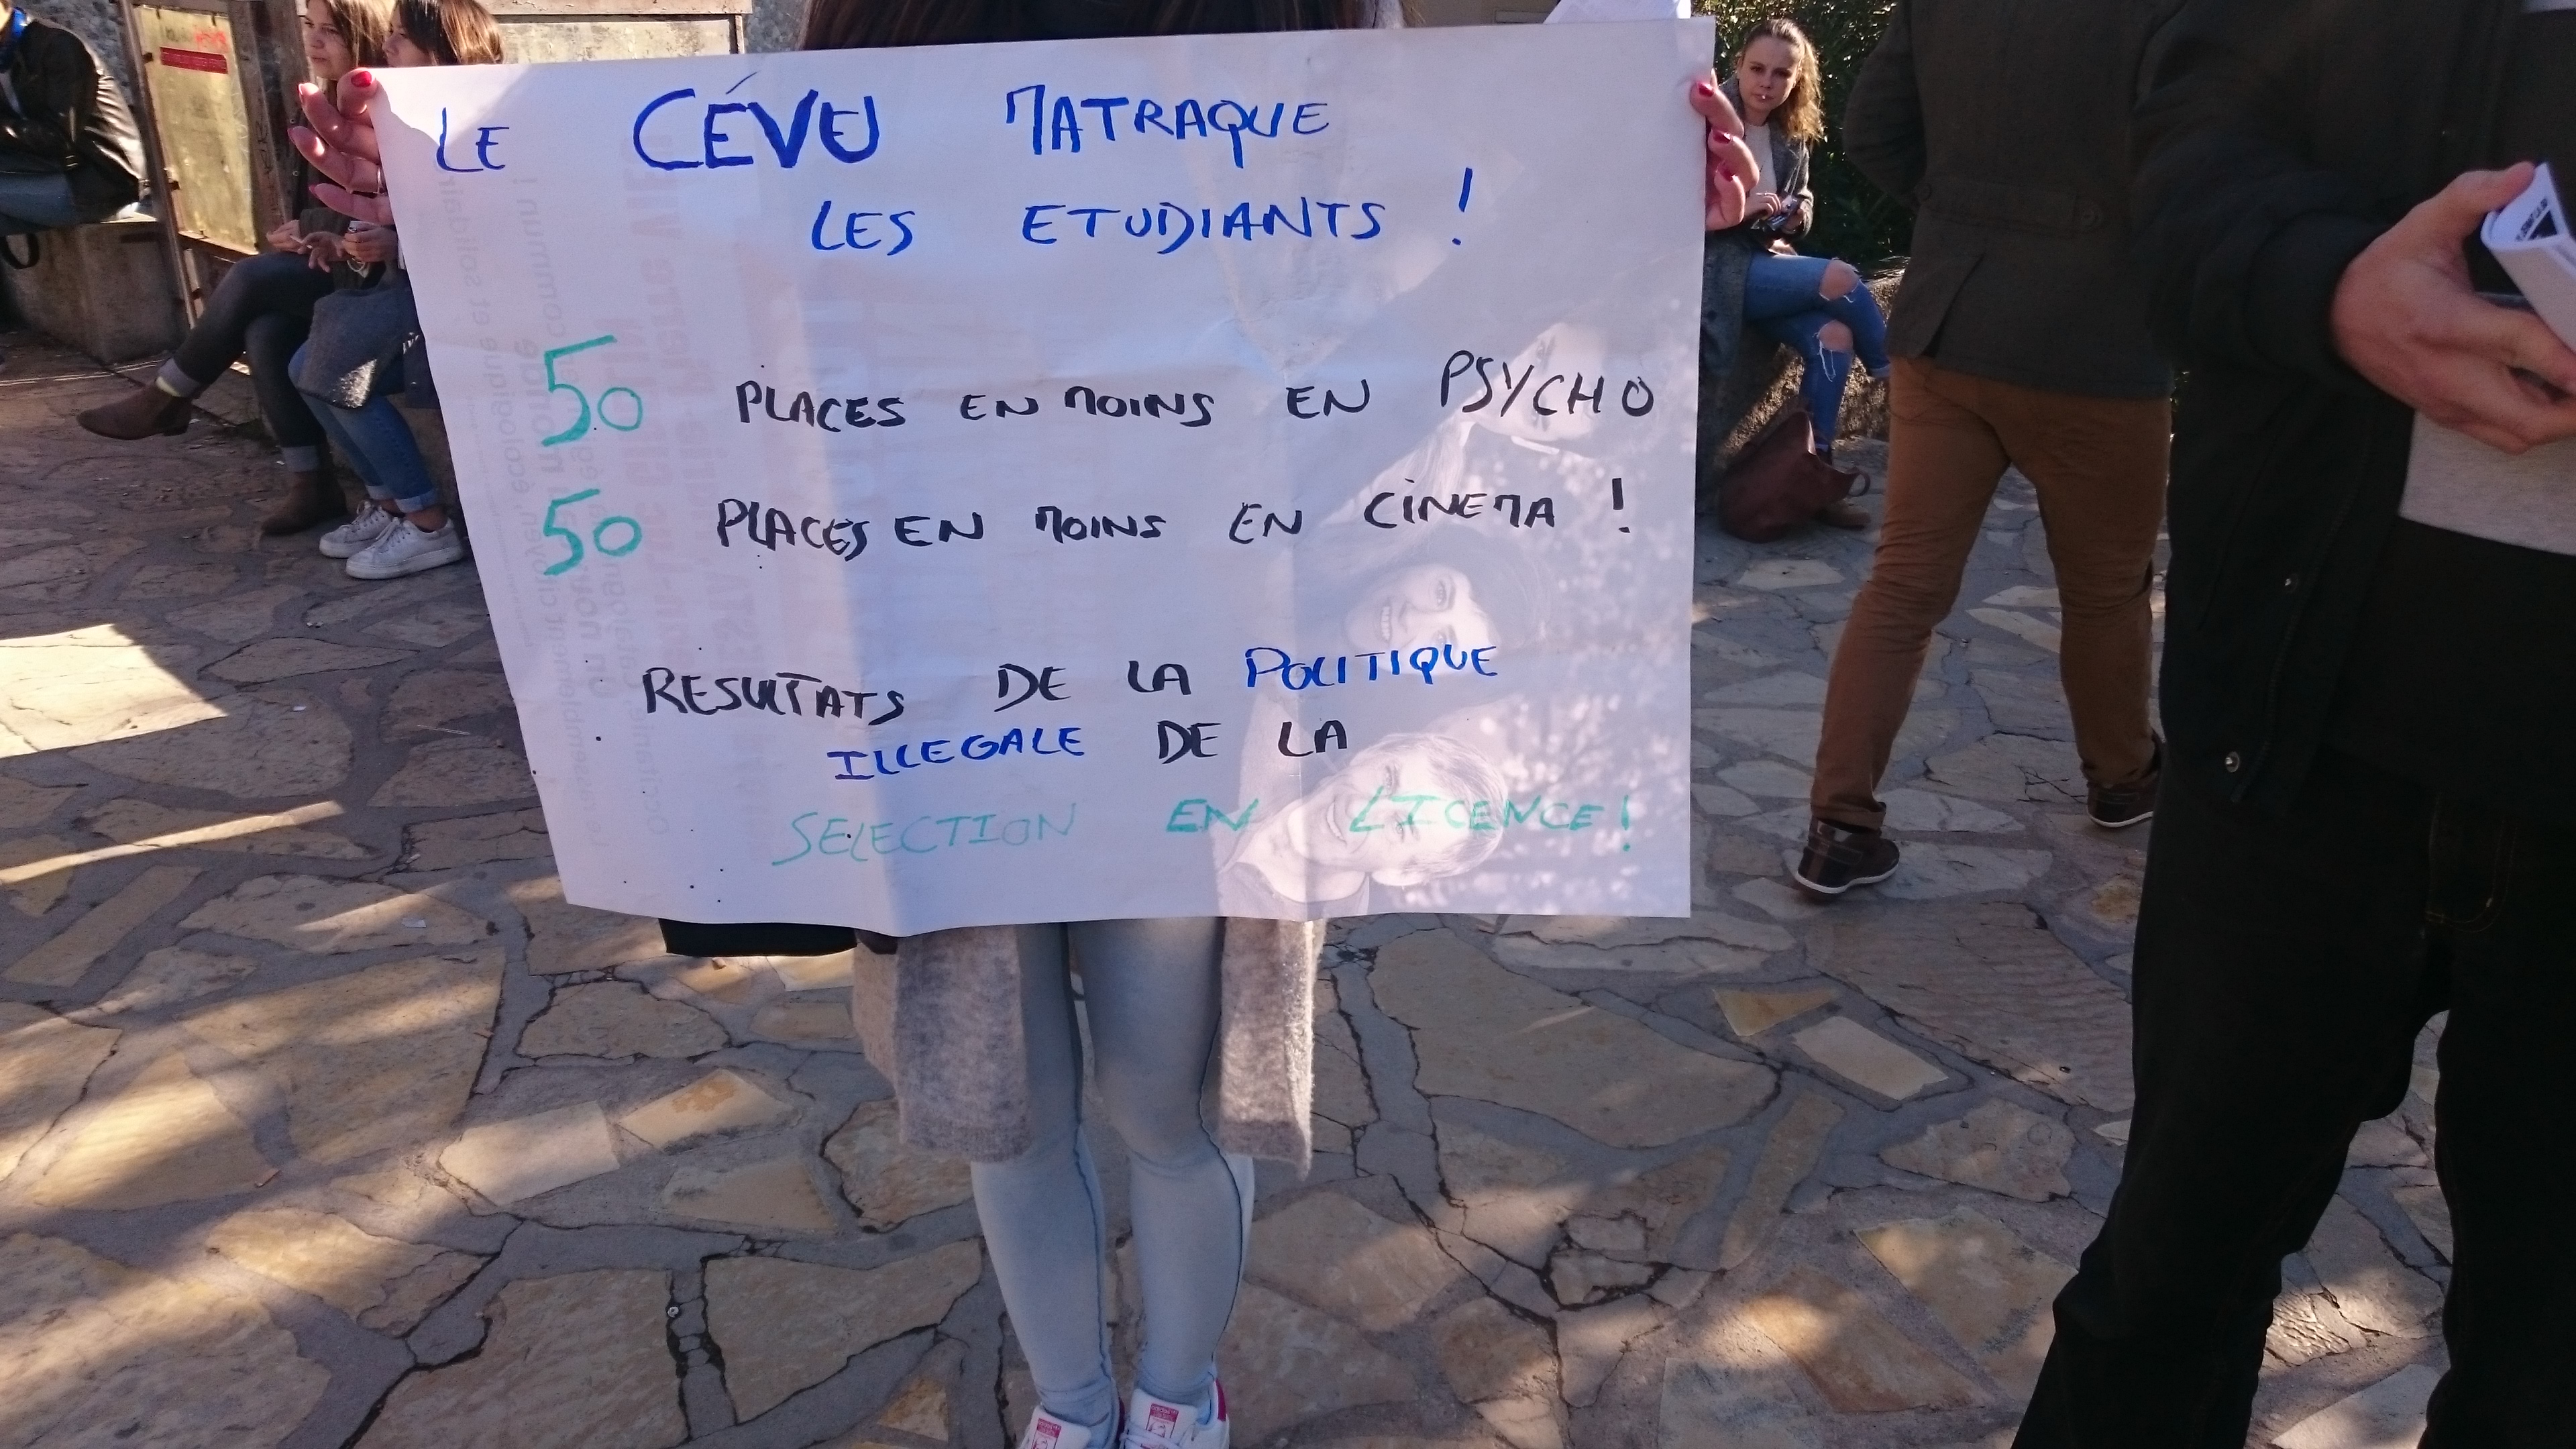 LE CÉVU MATRAQUE
LES ETUDIANTS !
50 PLACES EN MOINS EN PSYCHO
50 PLACES EN MOINS EN CINEMA !
RESULTATS DE LA POLITIQUE
ILLEGALE DE LA
SELECTION EN LICENCE !